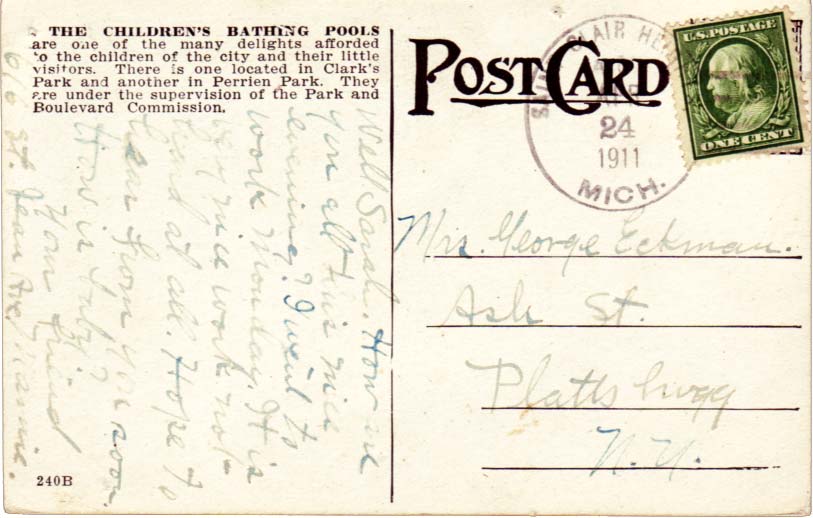 THE CHILDREN'S BATHING POOLS
are one of the many delights afforded
to the children of the city and their little
visitors. There is one located in Clark's
Park and another in Perrien Park. They
are under the supervision of the Park and
Boulevard Commission.
Well Sarah. How are
you all this nice
evening? I went to
work Monday. It is
very nice work not
hard at all. Hope to
hear from you soon.
How is baby?
Your friend
Nannie.
St. Jean Ave.
240B
POST CARD
CLAIR HE
24
1911
MICH.
U.S. POSTAGE
ONE CENT
Mrs. George Eckman.
Ash St.
Plattsburgg
N.Y.